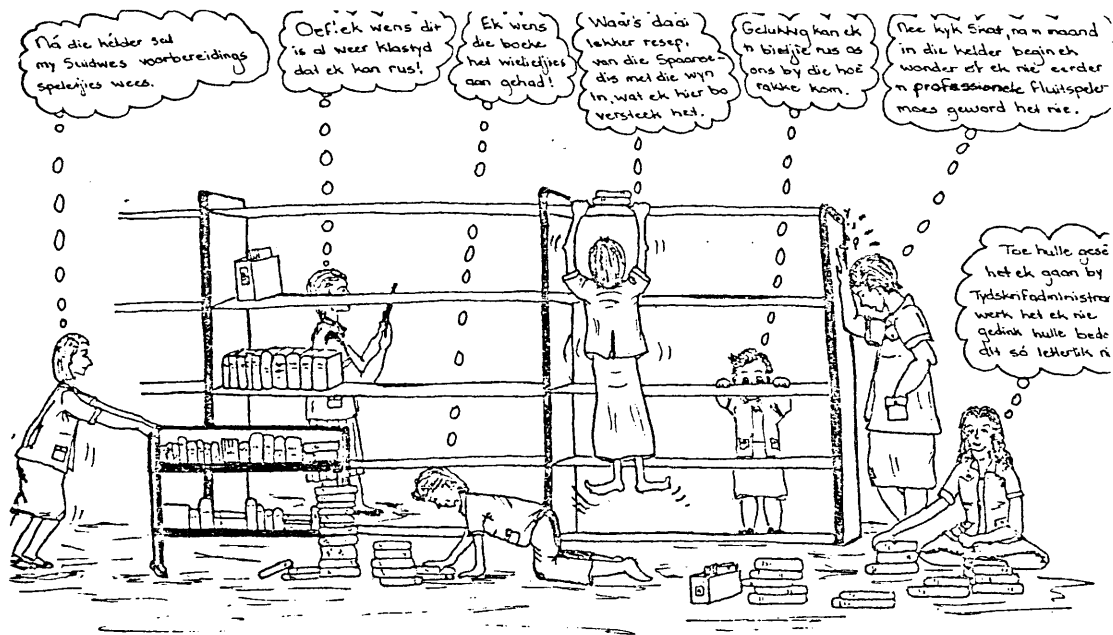 Ná die kelder sal
my Suidwes voorbereidings
speletjies wees.
Oef! ek wens dit
is al weer klastyd
dat ek kan rus!
Ek wens
die boeke
het wieletjies
aan gehad!
Waar's daai
lekker resep,
van die Spaanse
dis met die wyn
in, wat ek hier bo
versteek het.
Gelukkig kan ek
'n bietjie rus as
ons by die hoë
rakke kom.
Nee kyk Skat, na 'n maand
in die kelder begin ek
wonder of ek nie eerder
'n professionele fluitspeler
moes geword het nie.
Toe hulle gesê
het ek gaan by
Tydskrifadministra
werk het ek nie
gedink hulle bedo
dit só letterlik ni